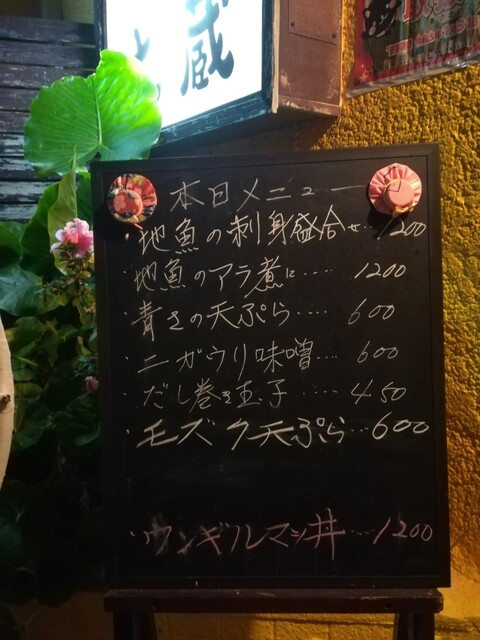 蔵
本日メニュー
・地魚の刺身盛合せ 1200
・地魚のアラ煮に‥‥ 1200
・青さの天ぷら‥‥ 600
・ニガウリ味噌‥‥ 600
・だし巻き玉子‥‥ 450
・モズク天ぷら‥‥600
・ソウンギルマシ丼‥‥1200